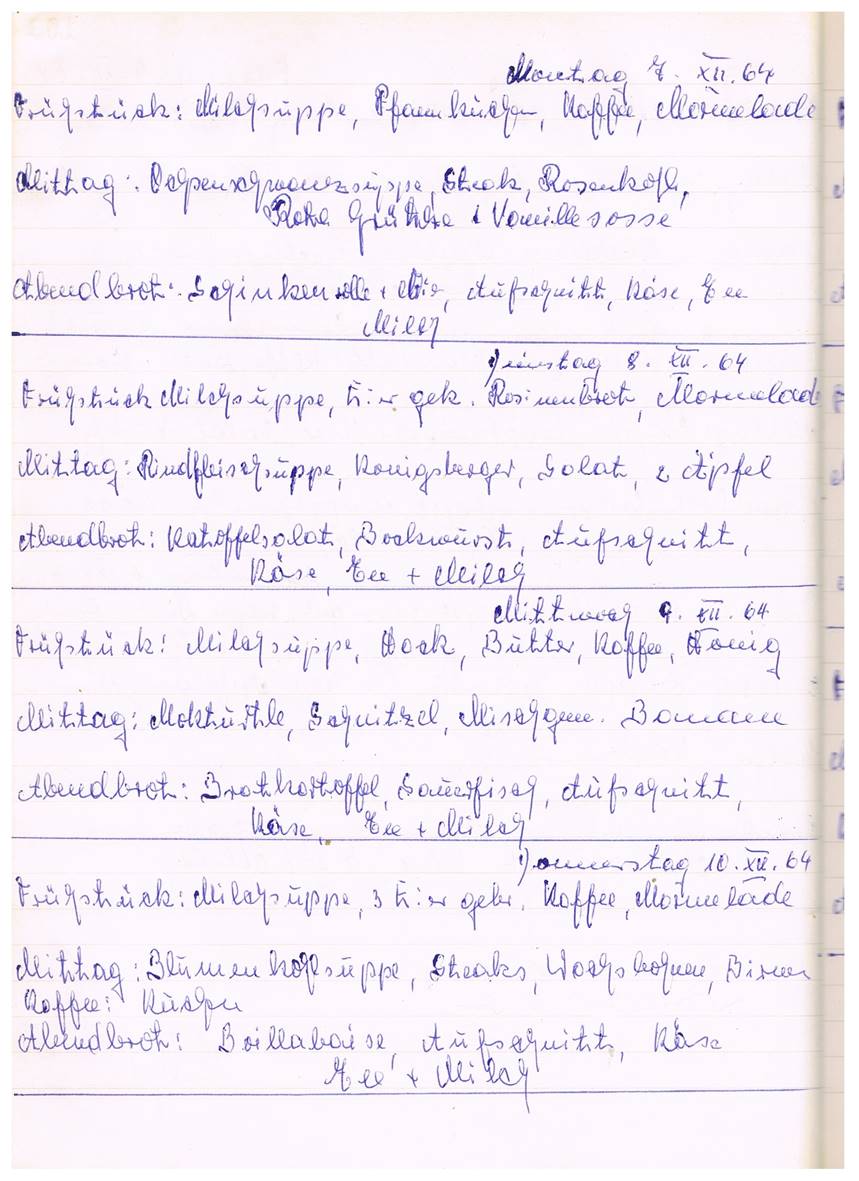 Montag 7. XII. 64
Frühstück: Milchsuppe, Pfannkuchen, Kaffee, Marmelade
Mittag: Ochsenschwanzsuppe, Steak, Rosenkohl,
Rote Grütze + Vanillesosse
Abendbrot: Schinkenrolle +, Aufschnitt, Käse, Tee
Milch
Dienstag 8. XII. 64
Frühstück Milchsuppe, Eier gek. Rosinenbrot, Marmelade
Mittag: Rindfleischsuppe, Königsberger, Salat, 2 Äpfel
Abendbrot: Katoffelsalat, Bockwurst, Aufschnitt,
Käse, Tee + Milch
Mittwoch 9. XII. 64
Frühstück: Milchsuppe, Butter, Kaffee, Honig
Mittag: Mokturtle, Schnitzel, Mischgem. Banane
Abendbrot: Bratkartoffel, Sauerfisch, Aufschnitt,
Käse, Tee + Milch
Donnerstag 10. XII. 64
Frühstück: Milchsuppe, 3 Eier gebr. Kaffee, Marmelade
Mittag: Blumenkohlsuppe, Steaks, Wachsbohnen, Birnen
Kaffee: Kuchen
Abendbrot: Boillabaise, Aufschnitt, Käse
Tee + Milch